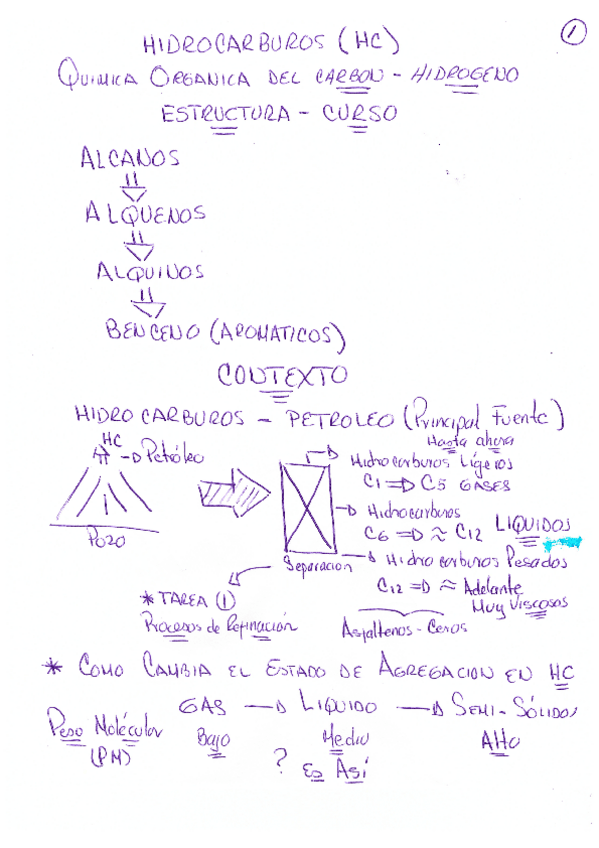 1
HIDROCARBUROS (HC)
QUIMICA ORGANICA DEL CARBON - HIDROGENO
ESTRUCTURA - CURSO
ALCANOS
ALQUENOS
ALQUINOS
BENCENO (AROMATICOS)
CONTEXTO
HIDROCARBUROS - PETROLEO (Principal Fuente)
Hasta ahora
HC
Petróleo
Pozo
Hidrocarburos Lígeros
C1 ⇒ C5 GASES
Hidrocarburos
C6 ⇒ ≈ C12 LIQUIDOS
Hidrocarburos Pesados
C12 ⇒ ≈ Adelante
Muy Viscosos
Separacion
* TAREA (1)
Procesos de Refinación
Asfaltenos - Ceras
* COMO CAMBIA EL ESTADO DE AGREGACION EN HC
GAS → LIQUIDO → SEMI-SÓLIDOS
Peso Molécular Bajo Medio Alto
(PM)
? Es Así